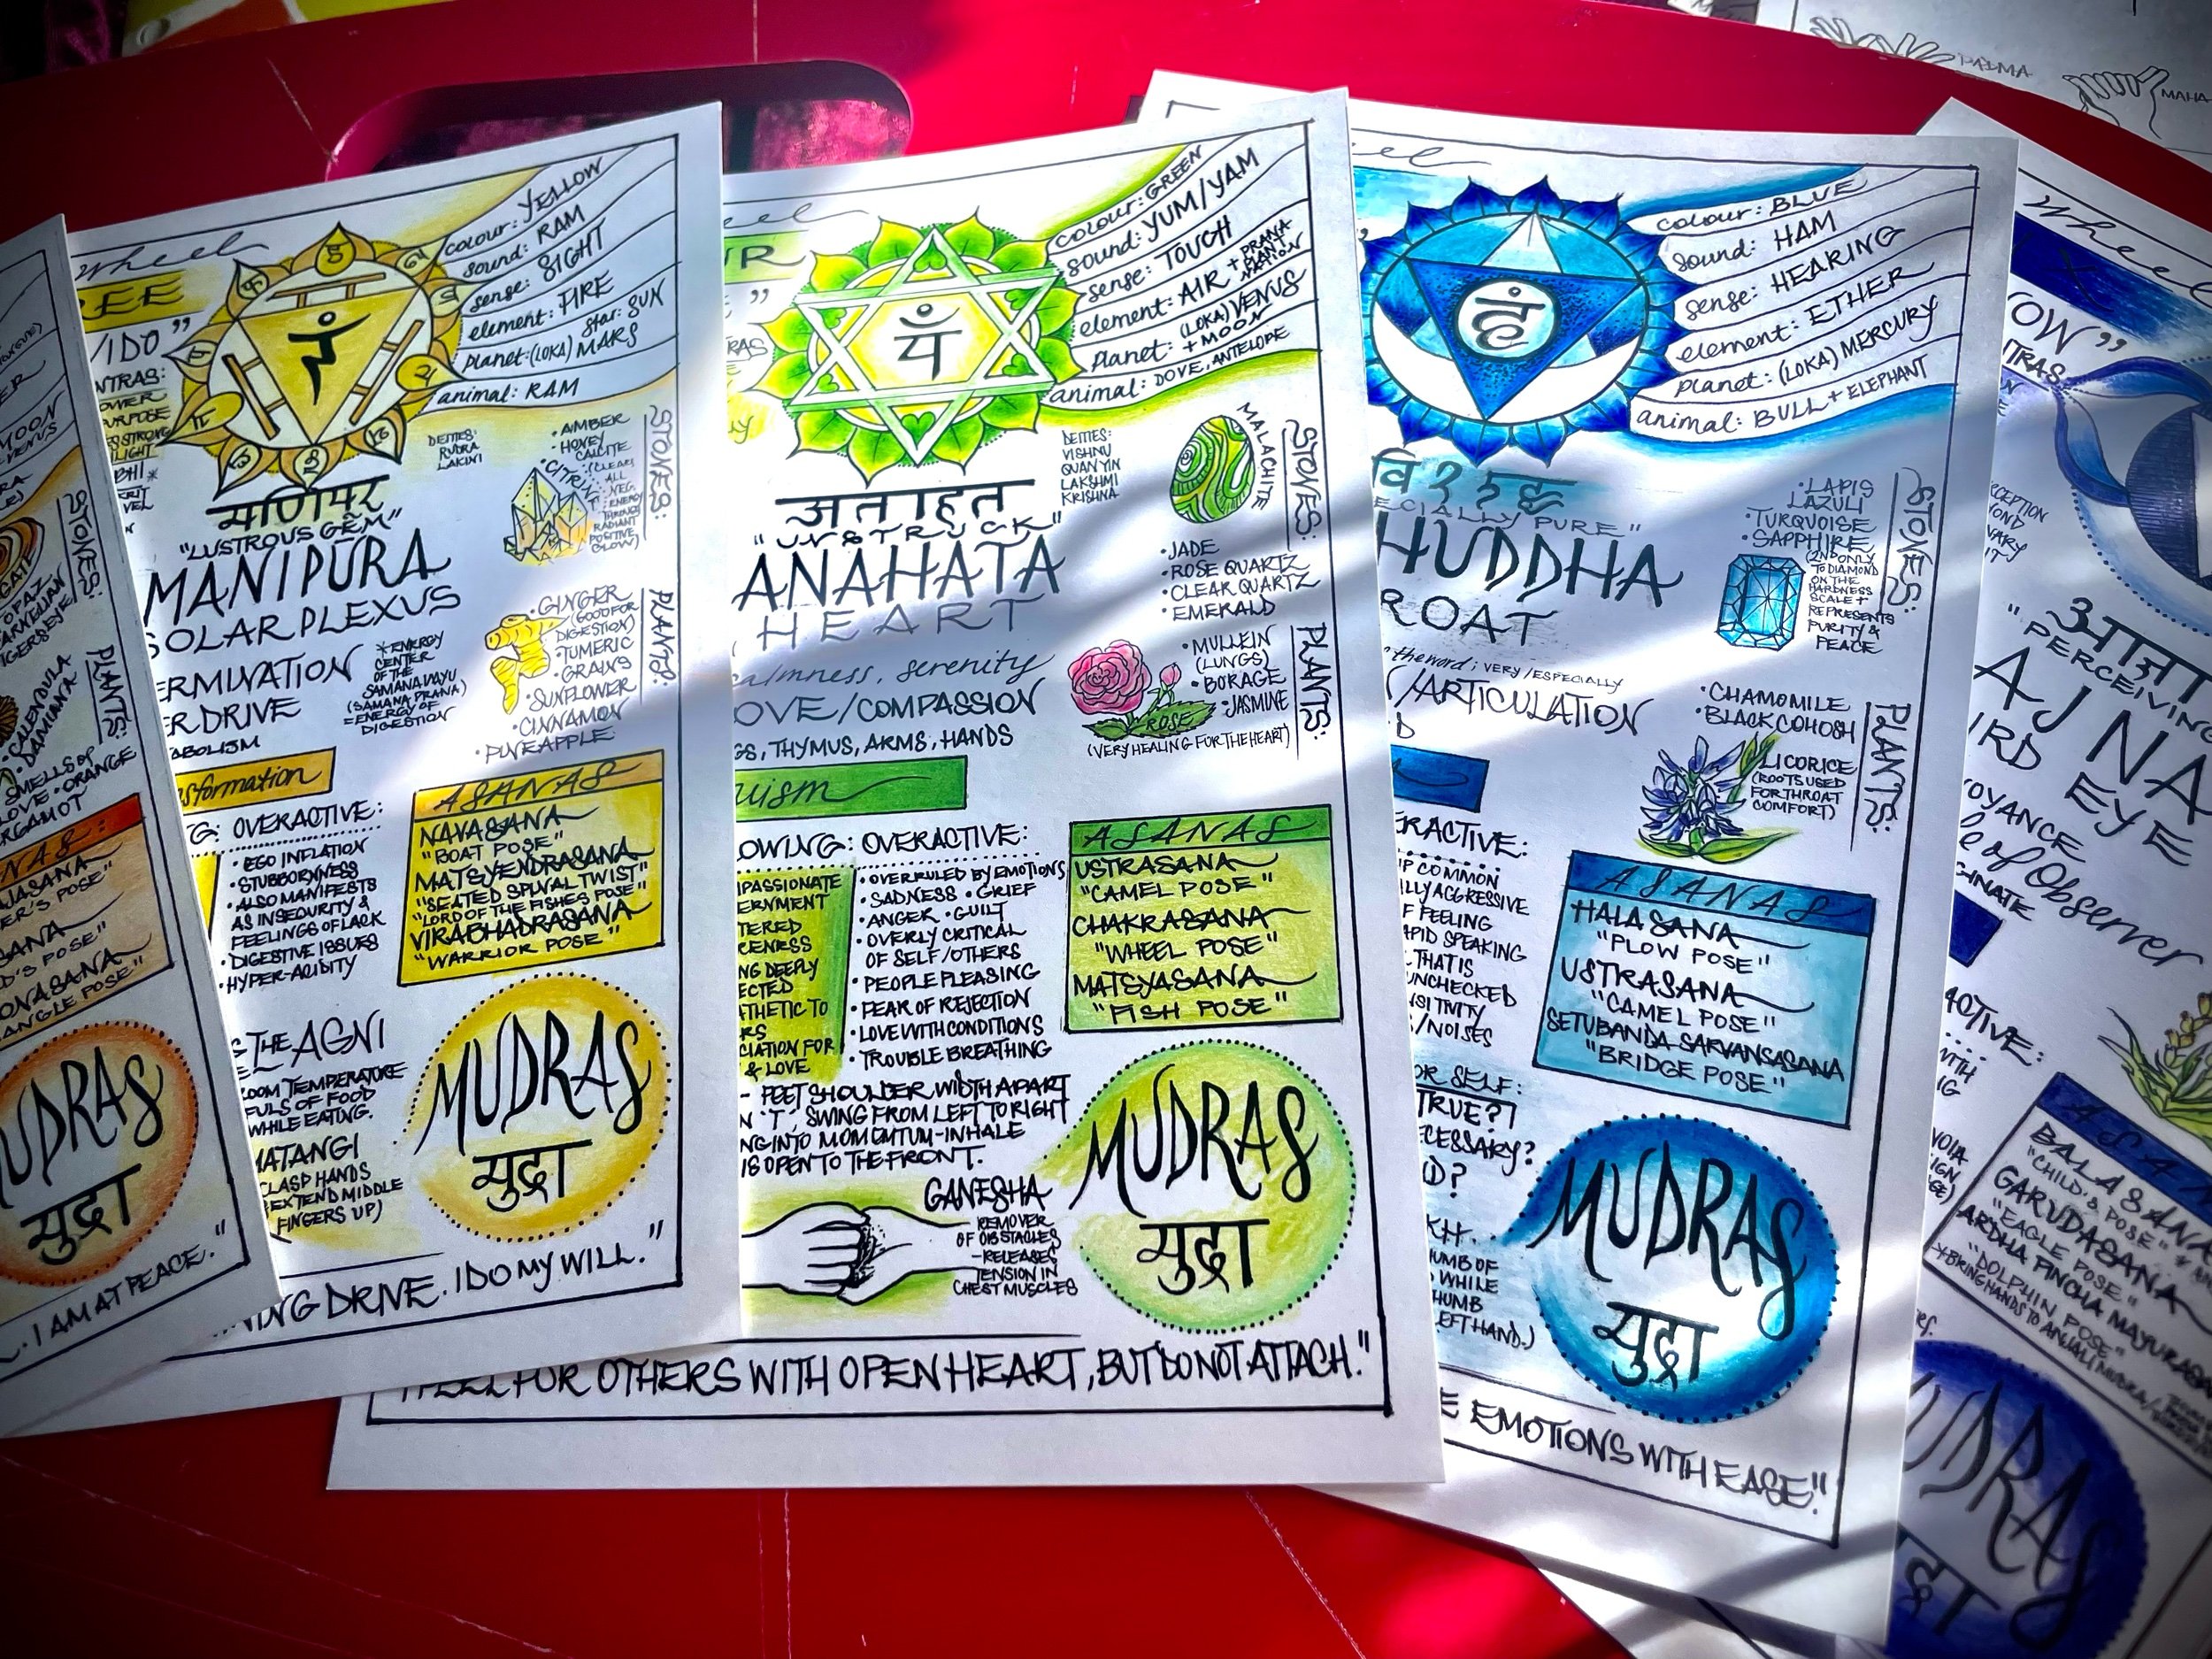 Wheel
REE
/IDO"
colour: YELLOW
sound: RAM
sense: SIGHT
element: FIRE
planet: (LOKA) MARS
star: SUN
animal: RAM
DEITIES:
RUDRA
LAKINI
"LUSTROUS GEM"
MANIPŪRA
SOLAR PLEXUS
ERMINATION
ER DRIVE
ABOLISM
*ENERGY
CENTER
OF THE
SAMANA VAYU
(SAMANA PRANA)
= ENERGY OF
DIGESTION
STONES:
• AMBER
• HONEY
CALCITE
• CITRINE
(CLEARS
ALL
NEG.
ENERGY
THROUGH
RADIANT
POSITIVE
GLOW)
PLANTS:
• GINGER
(GOOD FOR
DIGESTION)
• TUMERIC
• GRAINS
• SUNFLOWER
• CINNAMON
• PINEAPPLE
nsformation
G: OVERACTIVE:
• EGO INFLATION
• STUBBORNNESS
• ALSO MANIFESTS
AS INSECURITY &
FEELINGS OF LACK
• DIGESTIVE ISSUES
• HYPER-ACIDITY
ASANAS
NAVASANA
"BOAT POSE"
MATSYENDRASANA
"SEATED SPINAL TWIST"
"LORD OF THE FISHES POSE"
VIRABHADRASANA
"WARRIOR POSE"
THE AGNI
OOM TEMPERATURE
FULS OF FOOD
WHILE EATING.
MATANGI
CLASP HANDS
EXTEND MIDDLE
FINGERS UP)
MUDRAS
मुद्रा
NG DRIVE. I DO MY WILL."
colour: GREEN
sound: YUM/YAM
sense: TOUCH
element: AIR + PRANA
PLANT
NATION
planet: (LOKA) VENUS
+ MOON
animal: DOVE, ANTELOPE
यं
DEITIES:
VISHNU
QUAN YIN
LAKSHMI
KRISHNA
"UNSTRUCK"
ANAHATA
HEART
calmness, serenity
OVE/COMPASSION
GS, THYMUS, ARMS, HANDS
STONES:
MALACHITE
• JADE
• ROSE QUARTZ
• CLEAR QUARTZ
• EMERALD
PLANTS:
• MULLEIN
(LUNGS)
• BORAGE
• JASMINE
ROSE
(VERY HEALING FOR THE HEART)
uism
OWING: OVERACTIVE:
MPASSIONATE
ERNMENT
TERED
RENESS
NG DEEPLY
ECTED
ATHETIC TO
RS
CIATION FOR
& LOVE
• OVERRULED BY EMOTIONS
• SADNESS • GRIEF
• ANGER • GUILT
• OVERLY CRITICAL
OF SELF/OTHERS
• PEOPLE PLEASING
• FEAR OF REJECTION
• LOVE WITH CONDITIONS
• TROUBLE BREATHING
ASANAS
USTRASANA
"CAMEL POSE"
CHAKRASANA
"WHEEL POSE"
MATSYASANA
"FISH POSE"
- FEET SHOULDER WIDTH APART
N 'T', SWING FROM LEFT TO RIGHT
NG INTO MOMENTUM-INHALE
IS OPEN TO THE FRONT.
GANESHA
REMOVER
OF OBSTACLES
- RELEASES
TENSION IN
CHEST MUSCLES
MUDRAS
मुद्रा
FEEL FOR OTHERS WITH OPEN HEART, BUT DO NOT ATTACH."
colour: BLUE
sound: HAM
sense: HEARING
element: ETHER
planet: (LOKA) MERCURY
animal: BULL + ELEPHANT
हं
ECIALLY PURE"
HUDDHA
ROAT
the word; VERY/ESPECIALLY
/ARTICULATION
STONES:
• LAPIS
LAZULI
• TURQUOISE
• SAPPHIRE
(2ND ONLY
TO DIAMOND
ON THE
HARDNESS
SCALE +
REPRESENTS
PURITY &
PEACE
PLANTS:
• CHAMOMILE
• BLACK COHOSH
LICORICE
(ROOTS USED
FOR THROAT
COMFORT)
ERACTIVE:
IP COMMON
LLY AGGRESSIVE
F FEELING
APID SPEAKING
THAT IS
UNCHECKED
SITIVITY
/NOISES
ASANAS
HALASANA
"PLOW POSE"
USTRASANA
"CAMEL POSE"
SETUBANDA SARVANSASANA
"BRIDGE POSE"
OR SELF:
TRUE?
ECESSARY?
D?
UMB OF
WHILE
HUMB
LEFT HAND.)
MUDRAS
मुद्रा
E EMOTIONS WITH EASE."
Wheel
OW"
NTRAS
"PERCEIVING
AJNA
IRD EYE
OYANCE
e of Observer
GINATE
ACTIVE:
ASANA
BALASANA
"CHILD'S POSE"
GARUDASANA
"EAGLE POSE"
ARDHA PINCHA MAYURASA
"DOLPHIN POSE"
*BRING HANDS TO ANJALI MUDRA/
UDRAS
STONES:
TOPAZ
CARNELIAN
TIGERS EYE
PLANTS:
• CALENDULA
• DAMIANA
SMELLS OF
LOVE • ORANGE
RGAMOT
NAS:
JASANA
ER'S POSE"
ASANA
D'S POSE"
ONASANA
ANGLE POSE"
UDRAS
मुद्रा
. I AM AT PEACE."
PADMA
MAHA